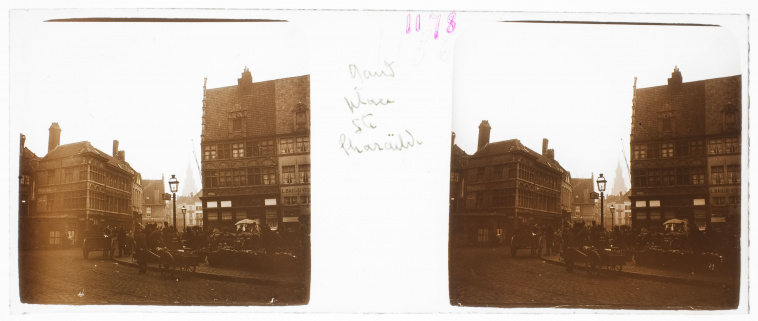 1178
Gand
place
Ste
Pharaïlde